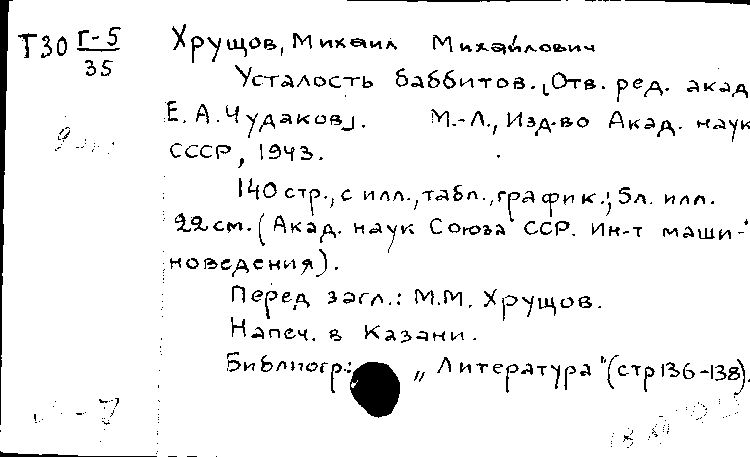 Т30 Г-5/35
Хрущов, Михаил Михайлович
Усталость баббитов. [Отв. ред. акад.
Е. А. Чудаков]. М.-Л., Изд-во Акад. наук
СССР, 1943.
140 стр., с илл., табл., график.; 5л. илл.
22 см. (Акад. наук Союза ССР. Ин-т маши-
новедения).
Перед загл.: М.М. Хрущов.
Напеч. в Казани.
Библиогр.: „Литература" (стр 136-138).